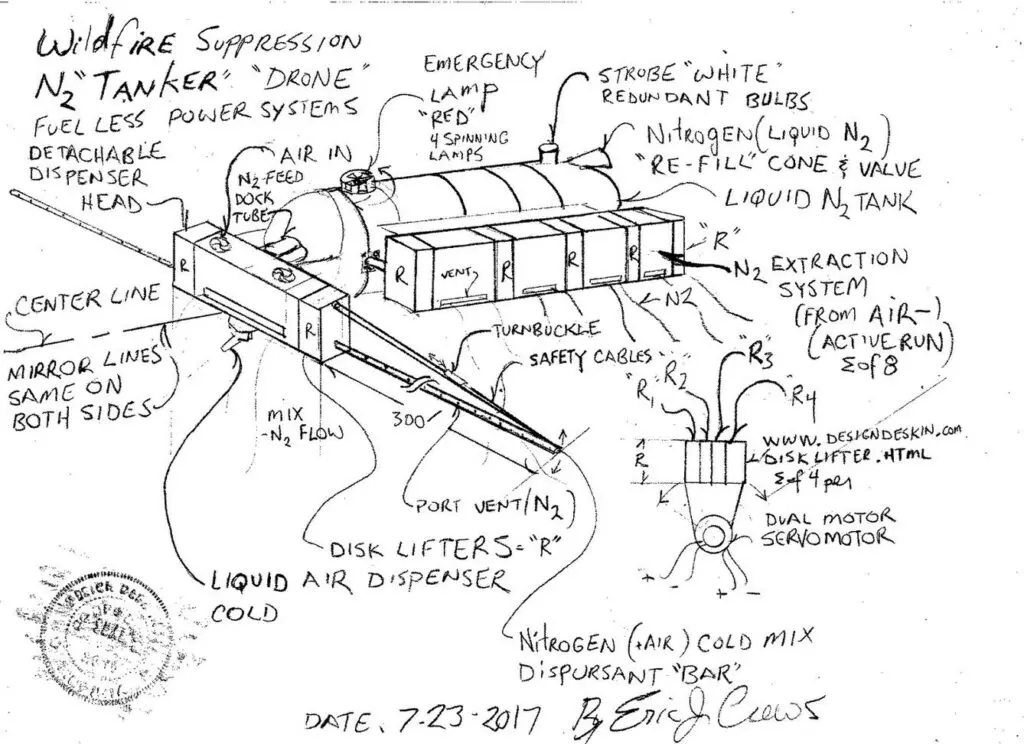 WildfIRE SUPPRESSION
N2 "TANKER" "DRONE"
FUEL LESS POWER SYSTEMS
DETACHABLE
DISPENSER
HEAD
AIR IN
N2 FEED
DOCK
TUBE
EMERGENCY
LAMP
"RED"
4 SPINNING
LAMPS
STROBE "WHITE"
REDUNDANT BULBS
NITROGEN (LIQUID N2)
"RE-FILL" CONE & VALVE
LIQUID N2 TANK
"R"
N2 EXTRACTION
SYSTEM
(FROM AIR-)
(ACTIVE RUN)
Σ of 8
R
R
R
R
R
R
VENT
N2
CENTER LINE
MIRROR LINES
SAME ON
BOTH SIDES
MIX
-N2 FLOW
TURNBUCKLE
SAFETY CABLES
300
PORT VENT/N2)
DISK LIFTERS = "R"
LIQUID AIR DISPENSER
COLD
"R1
"R2
"R3
"R4
R
WWW.DESIGNDESKIN.com
DISK LIFTER.HTML
Σ of 4 per
DUAL MOTOR
SERVOMOTOR
+ -
+ -
NITROGEN (+AIR) COLD MIX
DISPURSANT "BAR"
DATE. 7-23-2017 By Eric J. Crews